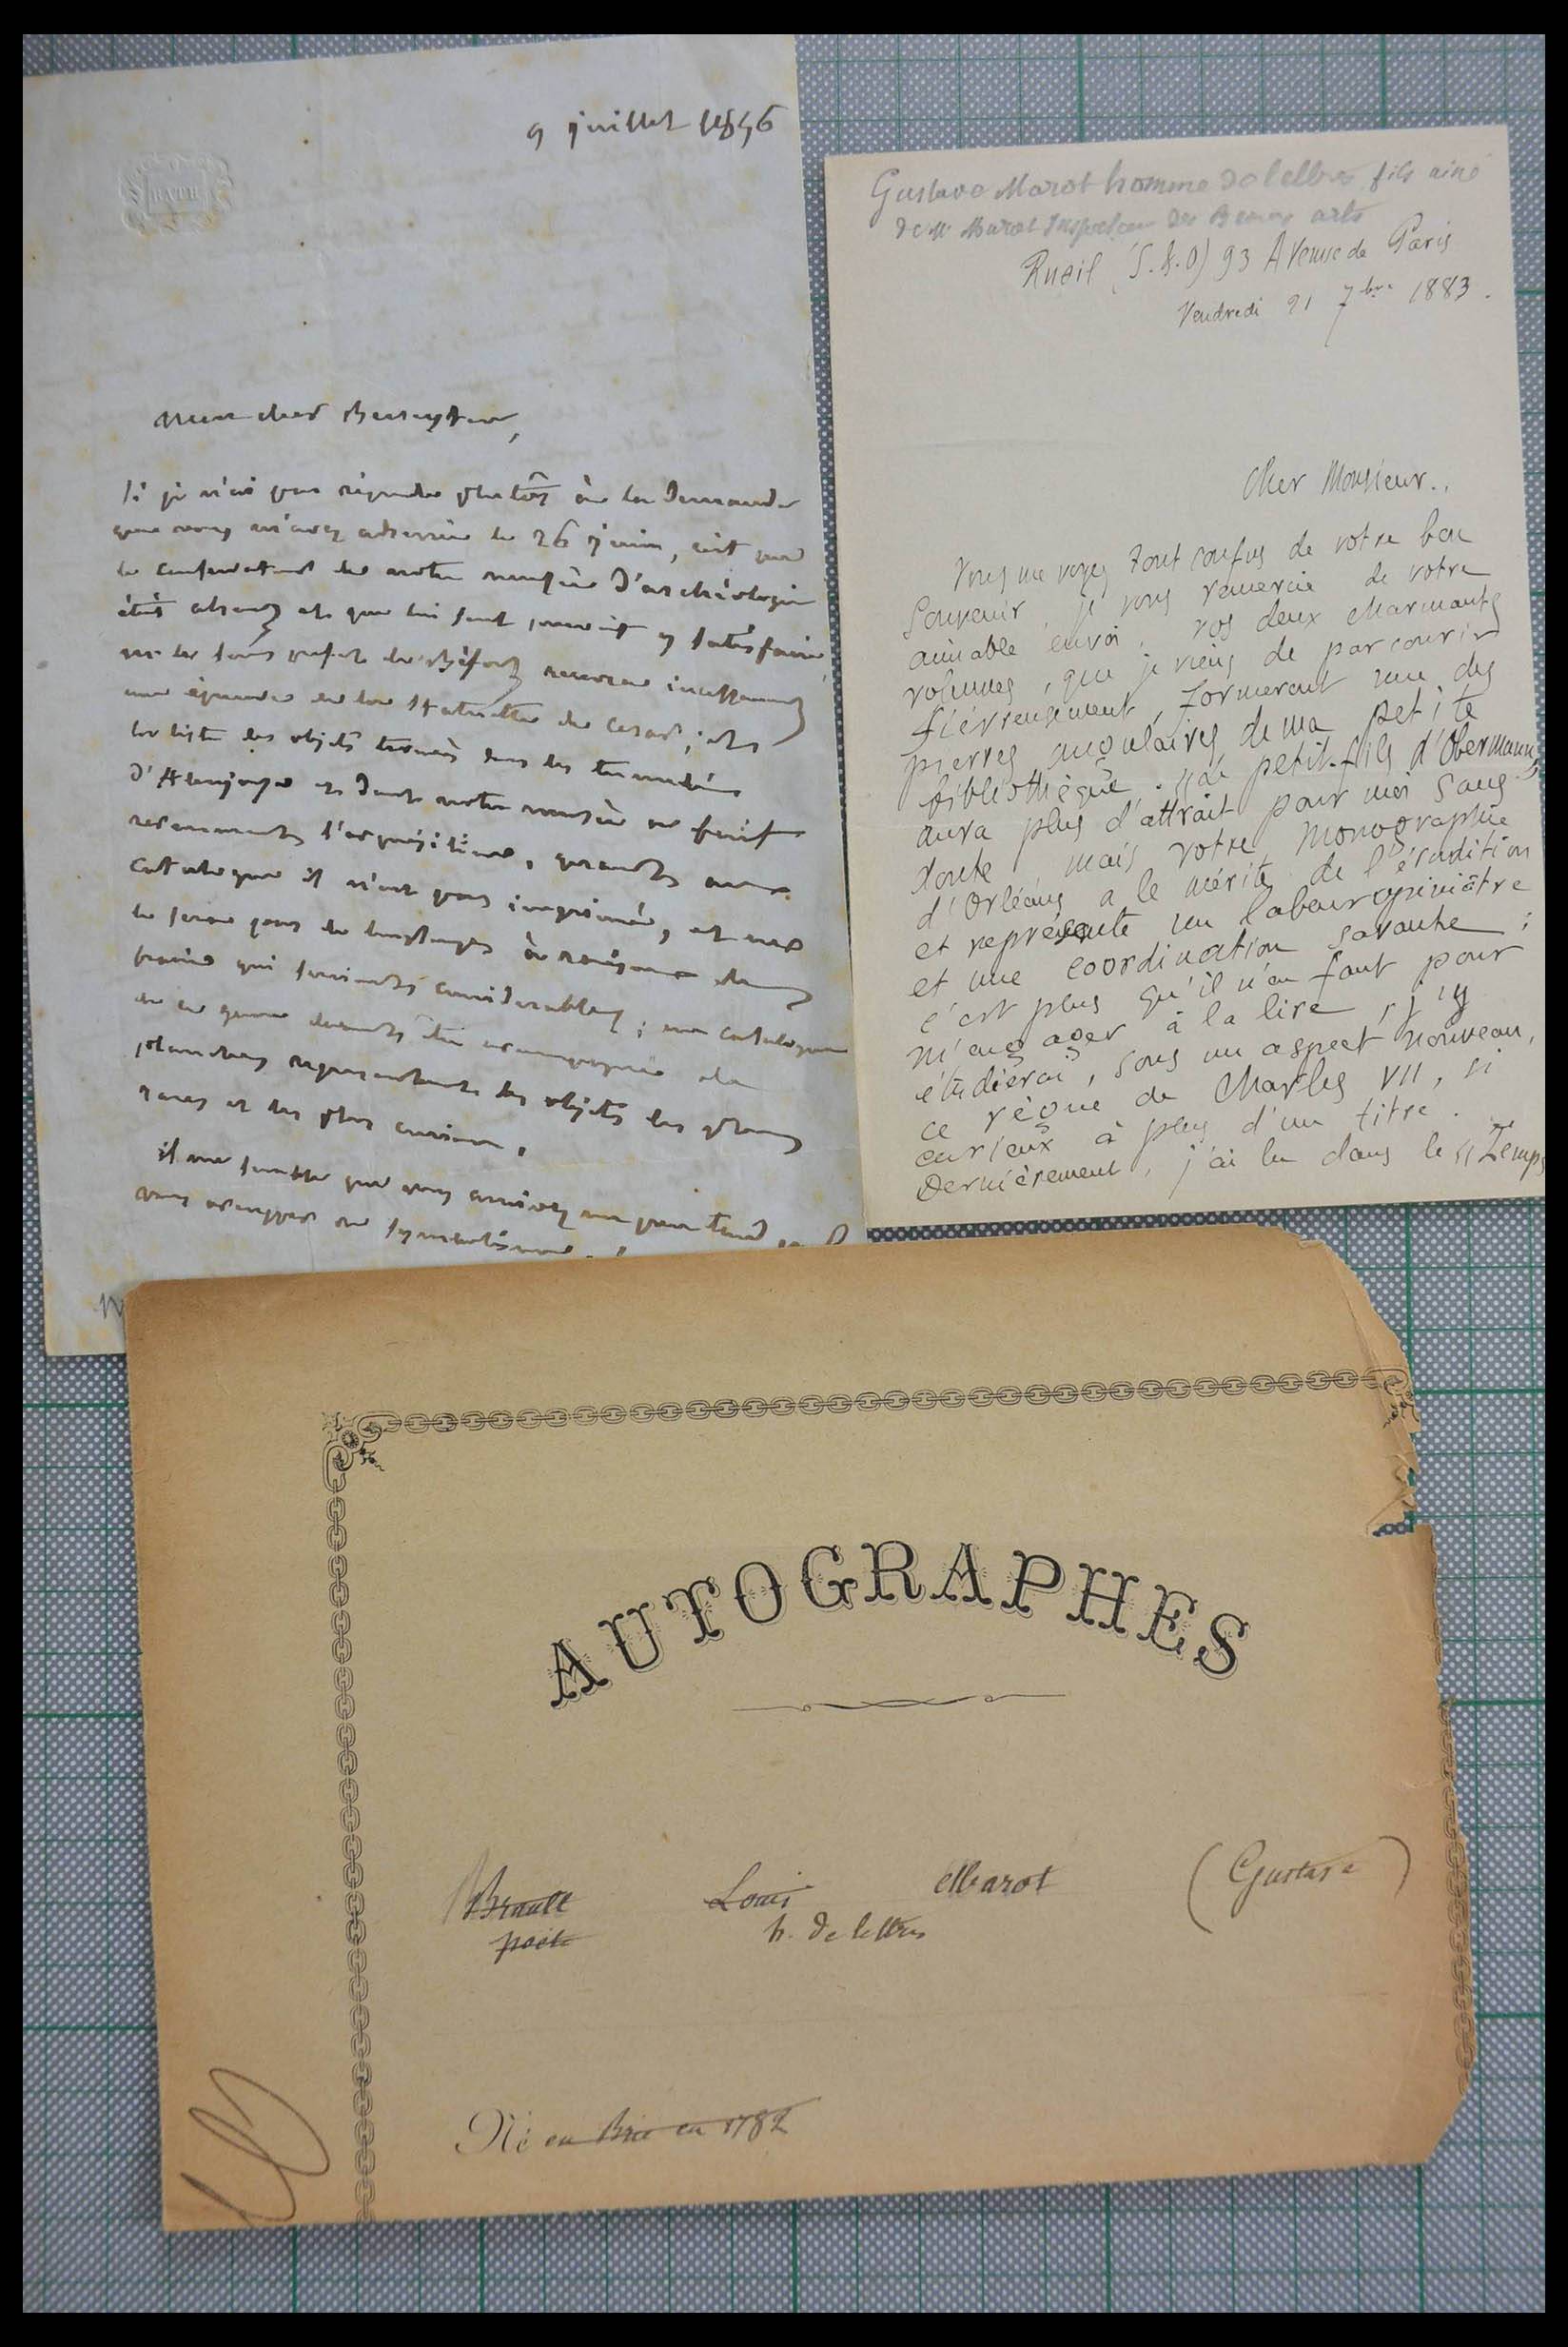 9 juillet 1856
Mon cher
Si je n'ai pas répondu plutôt à la demande
que vous m'avez adressée le 26 juin, c'est que
le conservateur de notre musée d'archéologie
était absent et que lui seul pouvait y satisfaire
une épreuve de la statuette de César, et
la liste des objets trouvés dans les
d'Alençon et dont notre musée
récemment l'acquisition, quant au
catalogue il n'est pas imprimé, et ne
le sera pas de longtemps à raison des
frais qui seraient considérables; un catalogue
de ce genre devant être accompagné de
planches représentant les objets les plus
rares et les plus curieux.
il me semble que vous
vous occuper de symbolisme
Gustave Marot homme de lettres fils ainé
de Mr Marot Inspecteur des Beaux arts
Rueil (S.&O) 93 Avenue de Paris
Vendredi 21 7bre 1883.
Cher Monsieur.,
Vous me voyez tout confus de votre bon
souvenir, je vous remercie de votre
aimable envoi. Vos deux charmants
volumes, que je viens de parcourir
fiévreusement, formeront une des
pierres angulaires de ma petite
bibliothèque. "Le petit-fils d'Obermann"
aura plus d'attrait pour moi sans
doute mais votre monographie
d'Orléans a le mérite de l'érudition
et représente un labeur opiniâtre
et une coordination savante;
c'est plus qu'il n'en faut pour
m'engager à la lire, j'y
étudierai, sous un aspect nouveau,
ce règne de Charles VII, si
curieux à plus d'un titre.
Dernièrement, j'ai lu dans le "Temps
AUTOGRAPHES
Brault Louis Marot (Gustave)
poète h. de lettres
Né en Brie en 1782